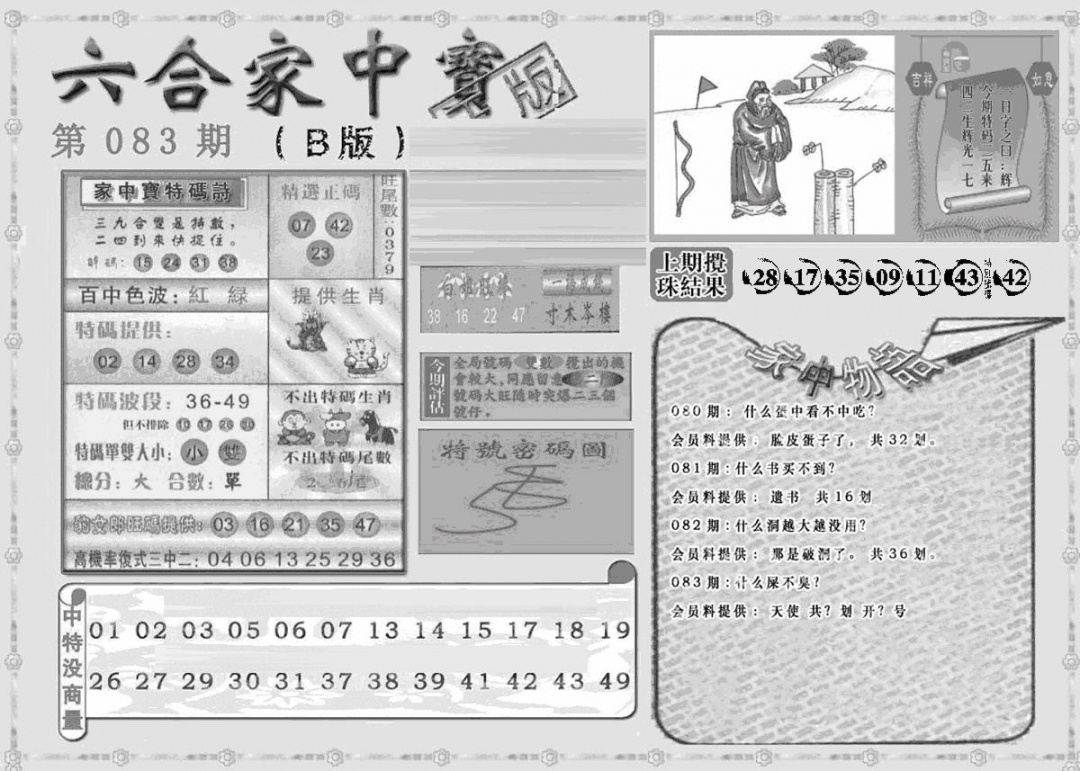 六合家中寶
版
第083期 (B版)
家中寶特碼詩
三九合雙是特數，
二四到來快捉住。
解碼：15 24 31 38
精選正碼
07 42
23
旺尾數：0379
百中色波：紅 緑
提供生肖
特碼提供：
02 14 28 34
特碼波段：36-49
但不排除
特碼單雙大小：小 雙
總分：大 合數：單
不出特碼生肖
不出特碼尾數
旺碼提供：03 16 21 35 47
高機率復式三中二：04 06 13 25 29 36
38 16 22 47
寸木岑樓
今期評估
全局號碼 雙數 攪出的機
會較大，同應留意 二
號碼大旺隨時突爆二三個
號仔。
特號密碼圖
吉祥
如意
一日字之曰：辉
今期特码二五来
四二生辉光一七
上期攪
珠結果
28 17 35 09 11 43 特別號碼 42
家中物語
080期：什么蛋中看不中吃？
会员料提供：脸皮蛋子了， 共32划。
081期：什么书买不到？
会员料提供：遗书 共16划
082期：什么洞越大越没用？
会员料提供：那是破洞了。 共36划。
083期：什么屎不臭？
会员料提供：天使 共？划 开？号
中特没商量
01 02 03 05 06 07 13 14 15 17 18 19
26 27 29 30 31 37 38 39 41 42 43 49